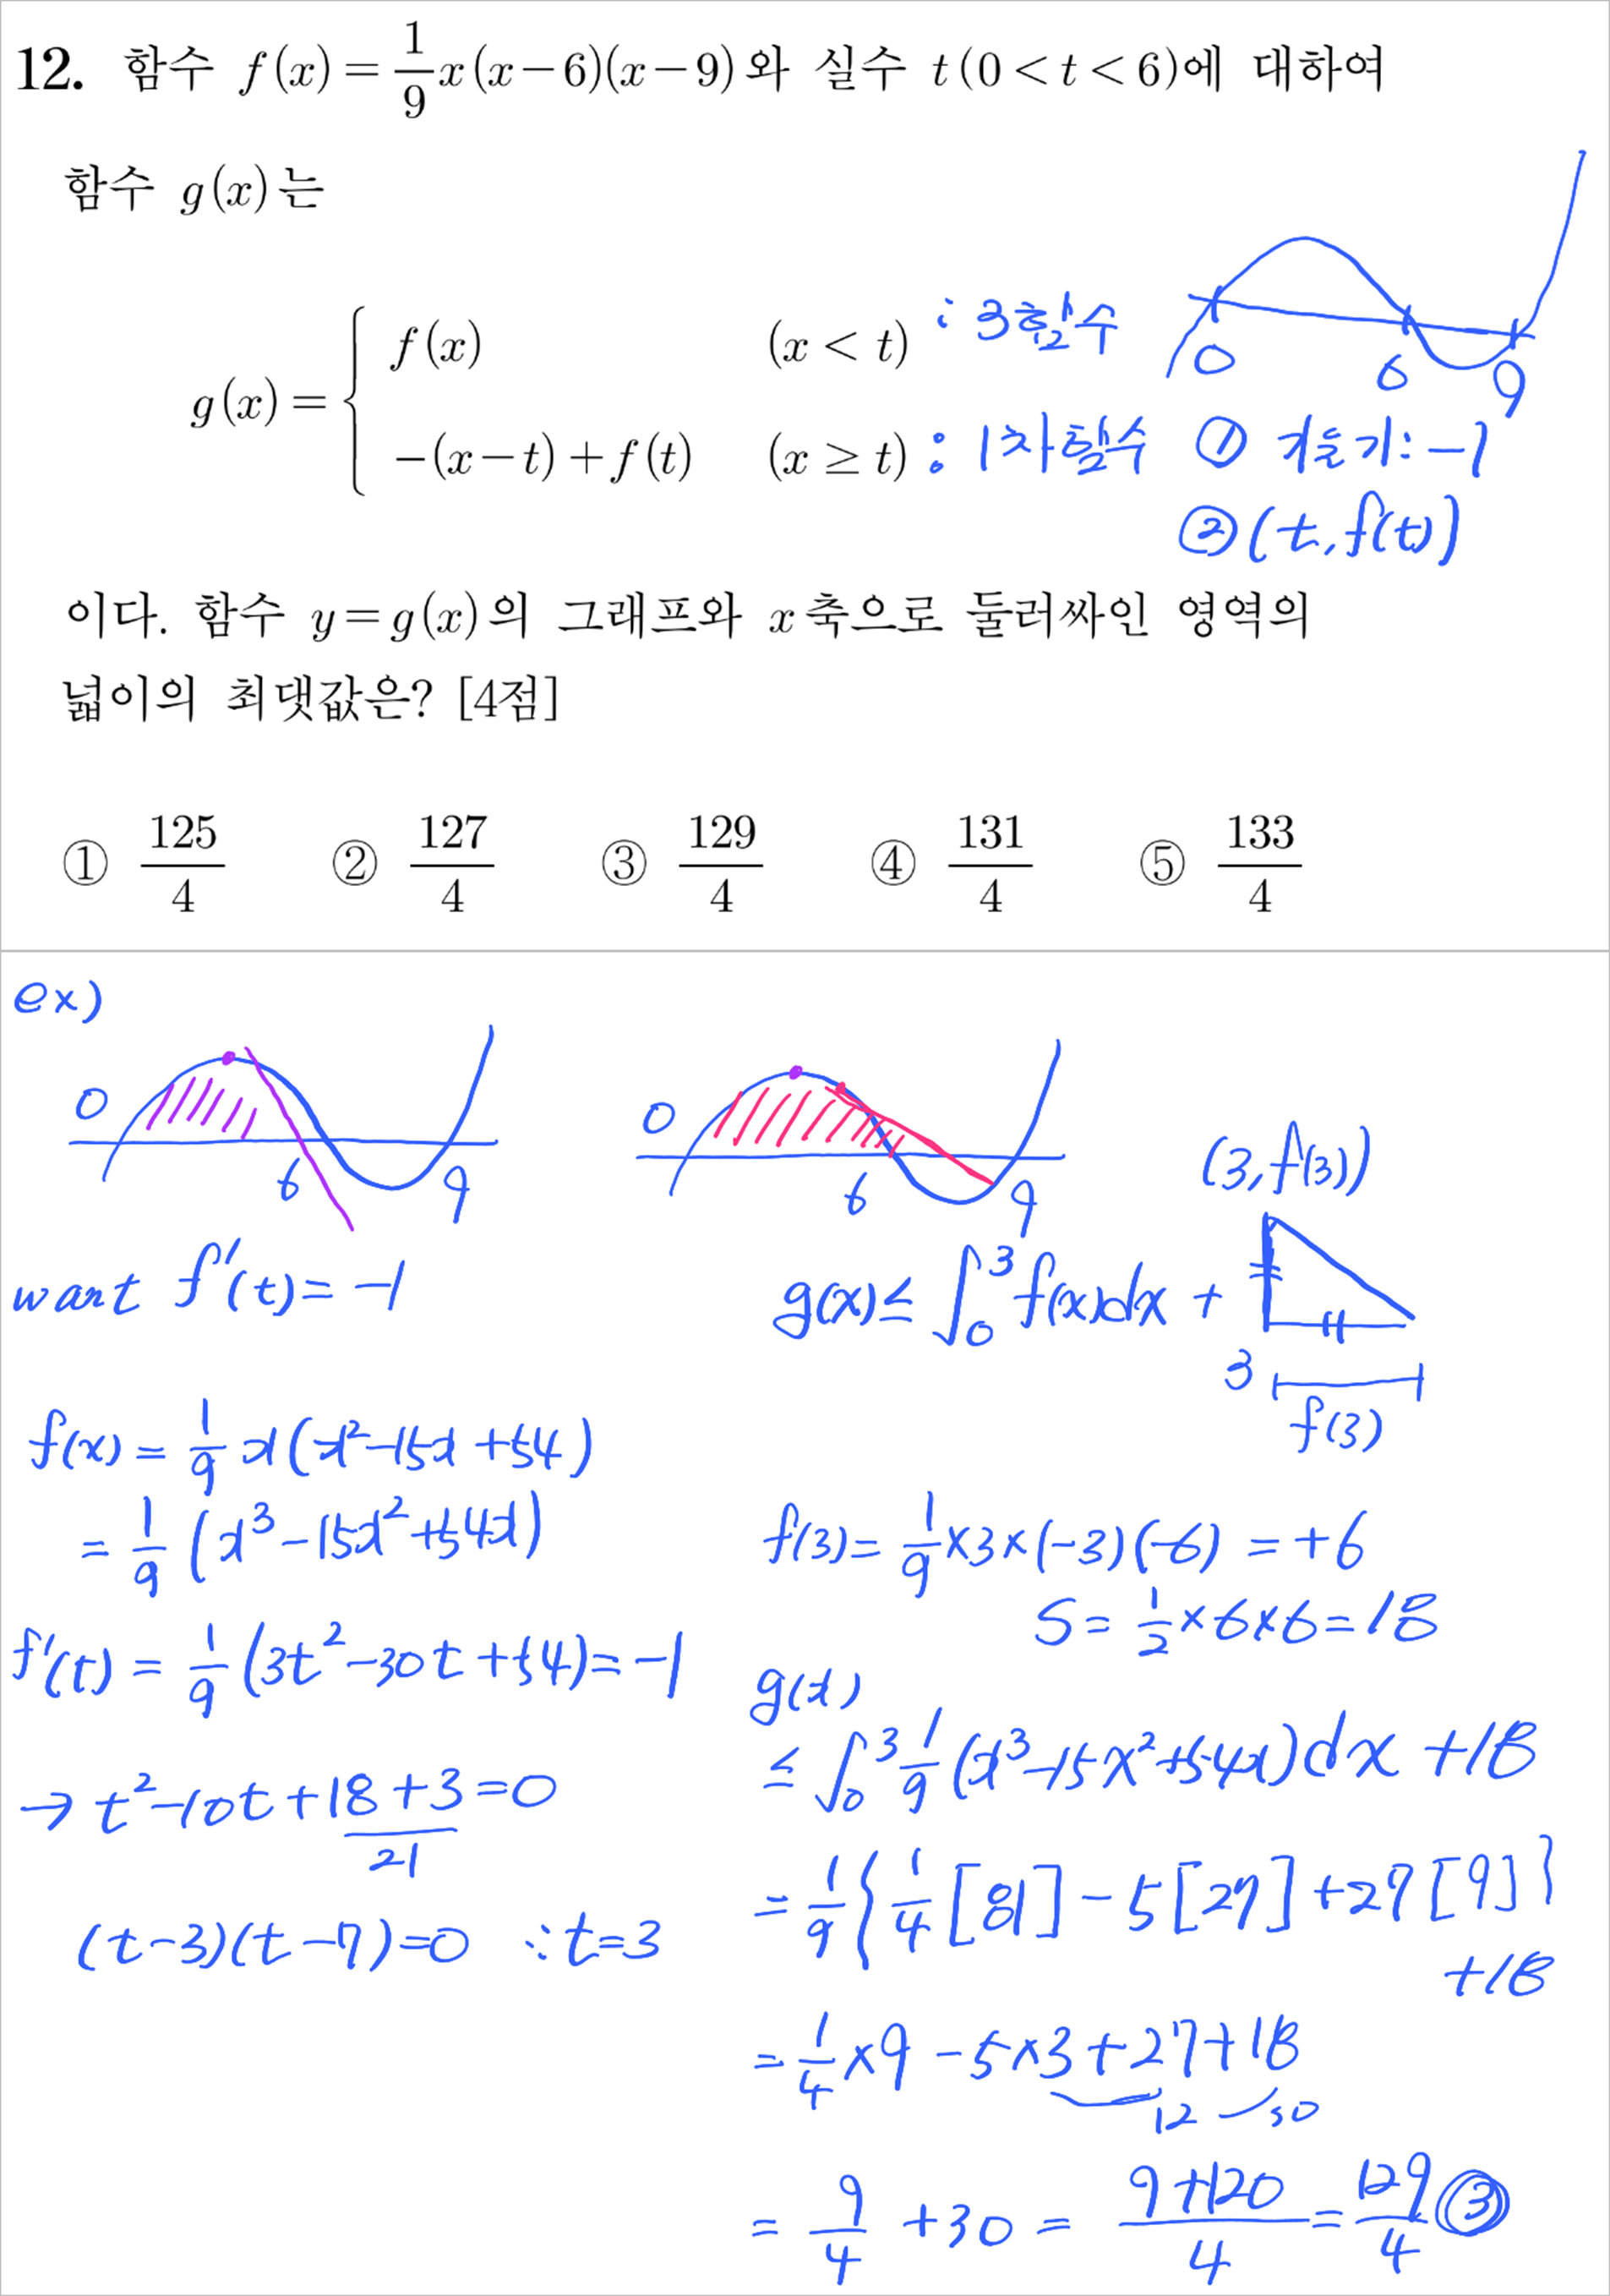 12. 함수 f(x) = \frac{1}{9}x(x-6)(x-9)와 실수 t(0<t<6)에 대하여
함수 g(x)는
g(x) = { f(x) (x < t) : 3함수
-(x-t)+f(t) (x ≥ t) : 1차함수 ① 기울기: -1
② (t, f(t))
0 6 9
이다. 함수 y=g(x)의 그래프와 x축으로 둘러싸인 영역의
넓이의 최댓값은? [4점]
① \frac{125}{4} ② \frac{127}{4} ③ \frac{129}{4} ④ \frac{131}{4} ⑤ \frac{133}{4}
ex)
0 6 9
want f'(t) = -1
f(x) = \frac{1}{9}x(x²-15x+54)
= \frac{1}{9}(x³-15x²+54x)
f'(t) = \frac{1}{9}(3t²-30t+54) = -1
→ t²-10t+18+3=0
21
(t-3)(t-7)=0 ∴t=3
0 6 9
(3, f(3))
g(x) ≤ ∫₀³ f(x)dx +
3
f(3)
f(3) = \frac{1}{9}×3×(-3)(-6) = +6
S = \frac{1}{2}×6×6 = 18
g(x)
≤ ∫₀³ \frac{1}{9}(x³-15x²+54x)dx +18
= \frac{1}{9}{\frac{1}{4}[81] - 5[27] + 27[9]}
+18
= \frac{1}{4}×9 - 5×3 + 27 + 18
12 30
= \frac{9}{4} + 30 = \frac{9+120}{4} = \frac{129}{4} ③